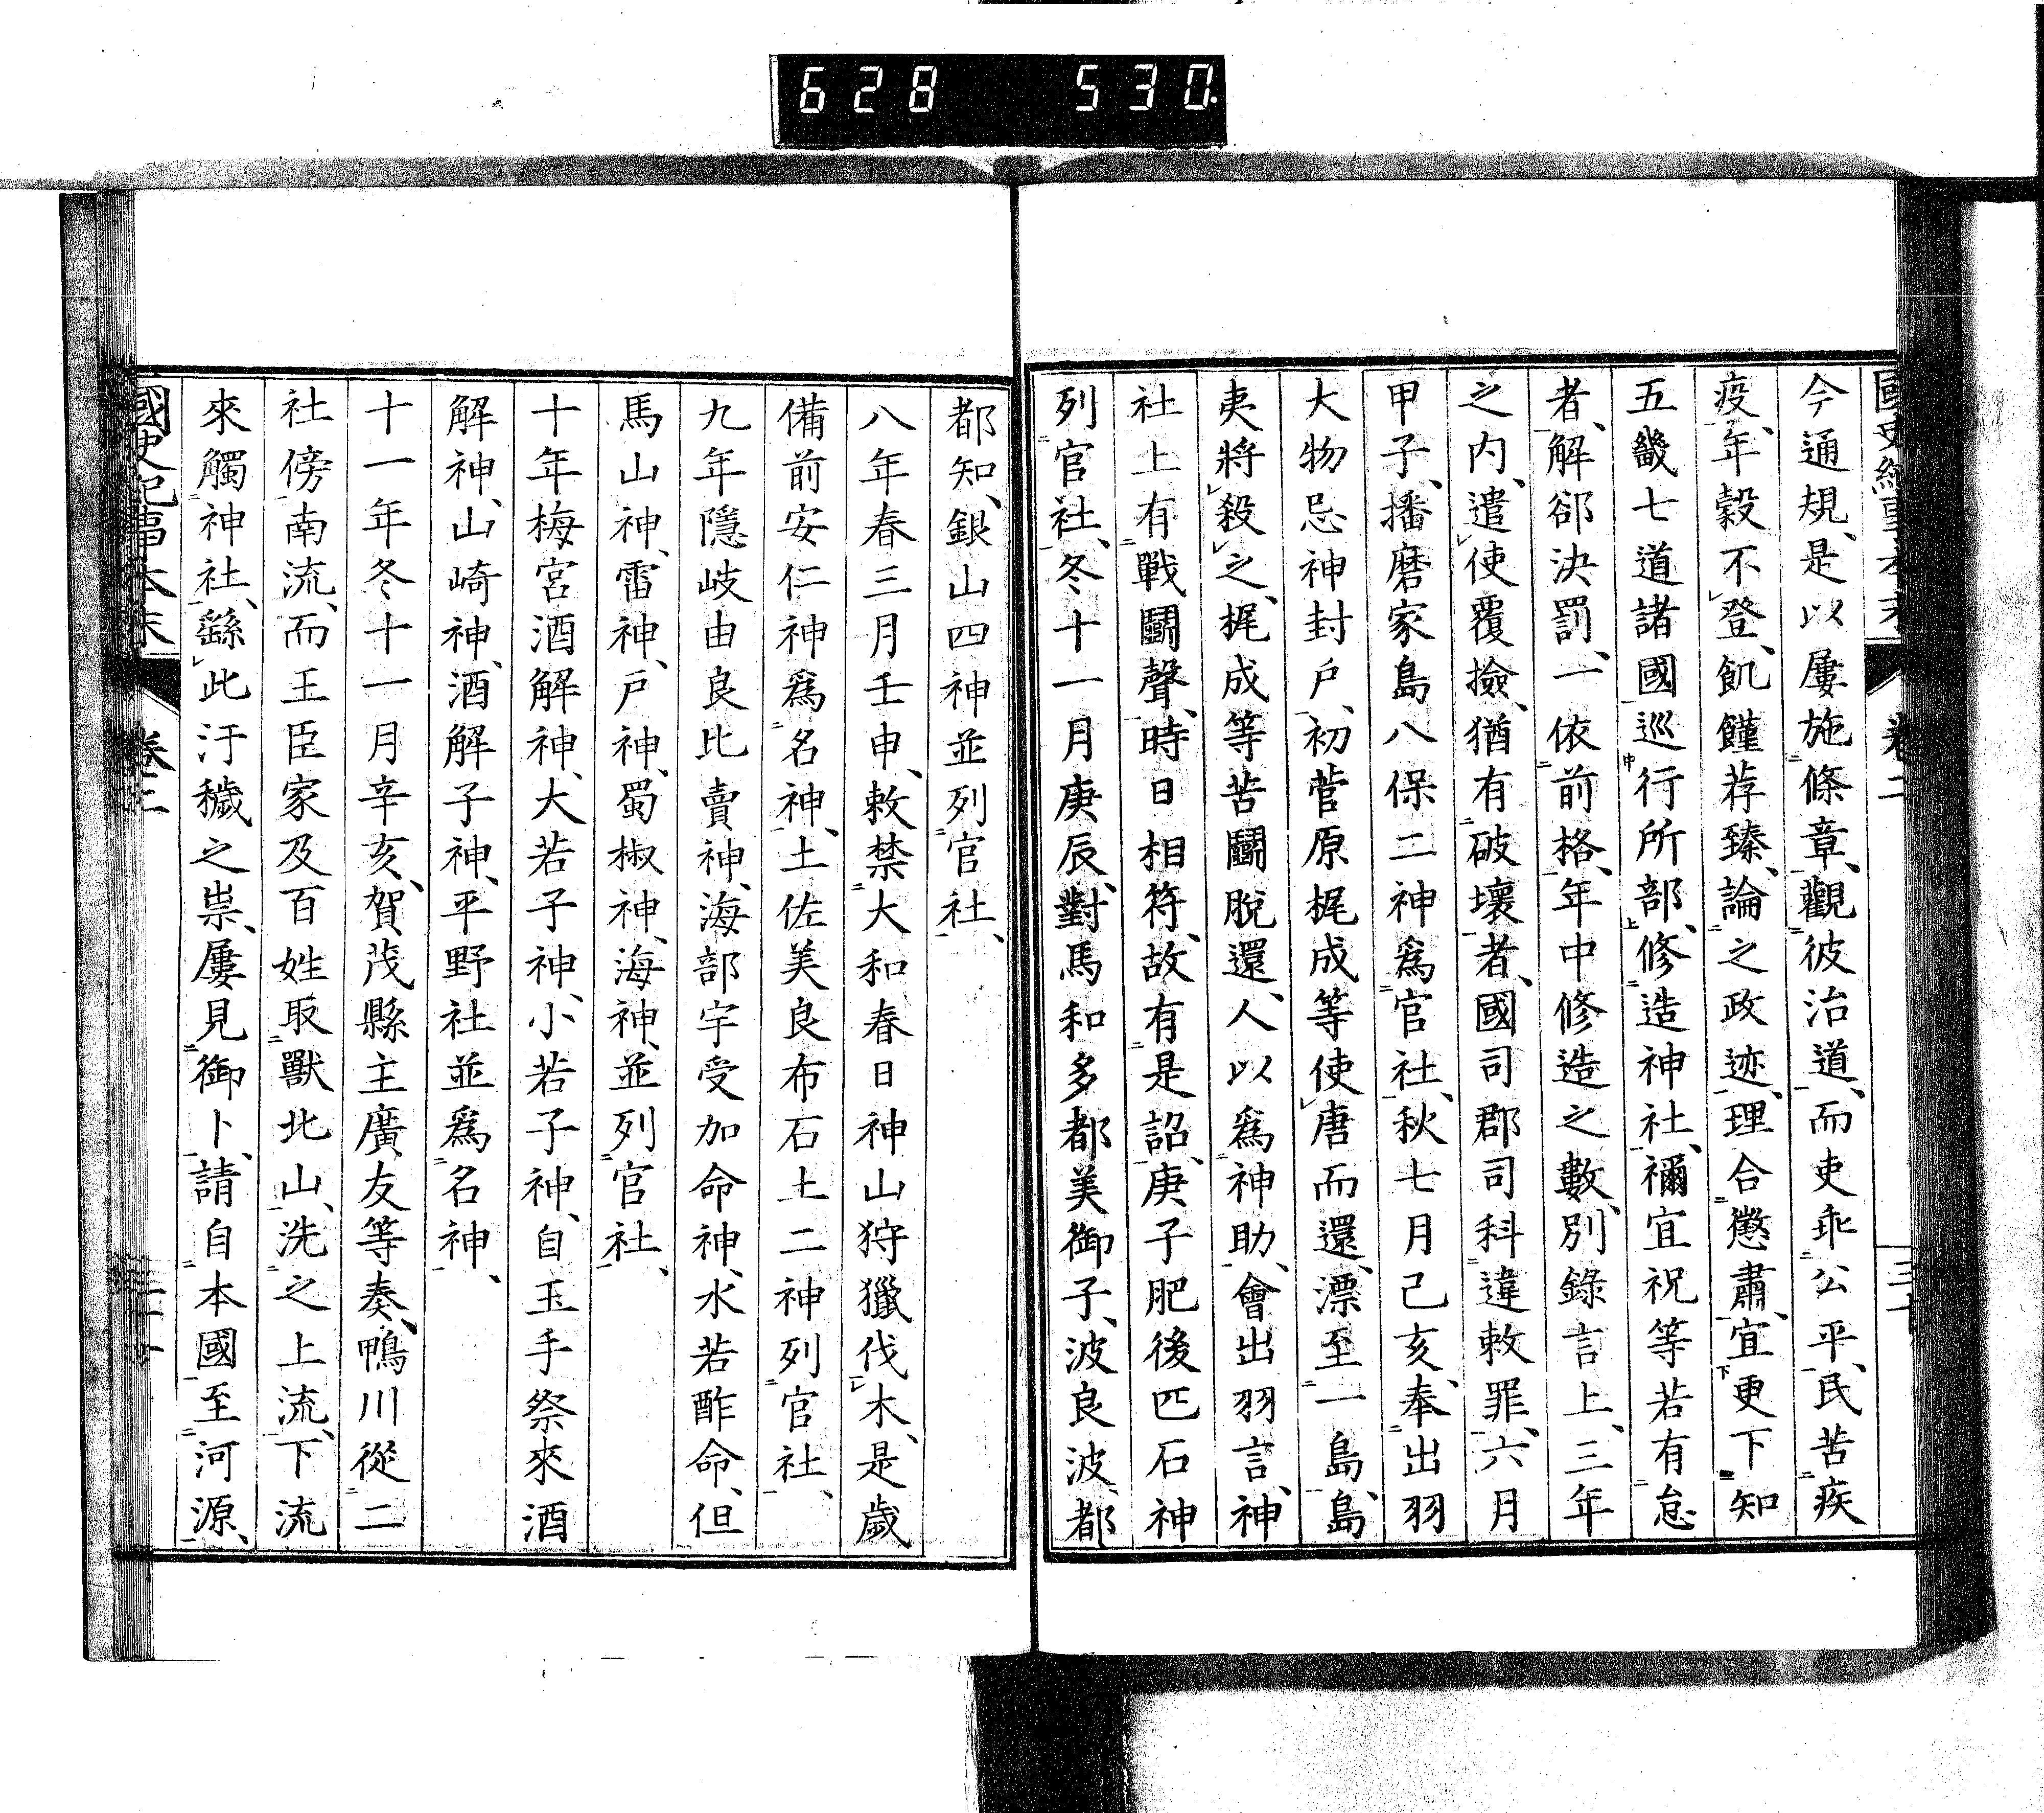 628 530
今通規、是以屢施條章、觀彼治道、而吏乖公平、民苦疾
疫、年穀不登、飢饉荐臻、論之政迹、理合懲肅、宜更下知
五畿七道諸國巡行所部、修造神社、禰宜祝等若有怠
者、解郤決罰、一依前格、年中修造之數、別錄言上、三年
之內、遣使覆撿、猶有破壞者、國司郡司科違敕罪、六月
甲子、播磨家島八保二神爲官社、秋七月己亥、奉出羽
大物忌神封戶、初菅原梶成等使唐而還、漂至一島、島
夷將殺之、梶成等苦鬭脫還、人以爲神助、會出羽言、神
社上有戰鬭聲、時日相符、故有是詔、庚子肥後疋石神
列官社、冬十一月庚辰、對馬和多都美御子、波良波都
都知、銀山四神並列官社、
八年春三月壬申、敕禁大和春日神山狩獵伐木、是歲
備前安仁神爲名神、土佐美良布石土二神列官社、
九年隱岐由良比賣神、海部宇受加命神、水若酢命、但
馬山神、雷神、戶神、蜀椒神、海神、並列官社、
十年梅宮酒解神、大若子神、小若子神、自玉手祭來酒
解神、山崎神、酒解子神、平野社並爲名神、
十一年冬十一月辛亥、賀茂縣主廣友等奏、鴨川從二
社傍南流、而王臣家及百姓取獸北山、洗之上流、下流
來觸神社、繇此汙穢之祟、屢見御卜、請自本國至河源、
國史紀事本末 卷三